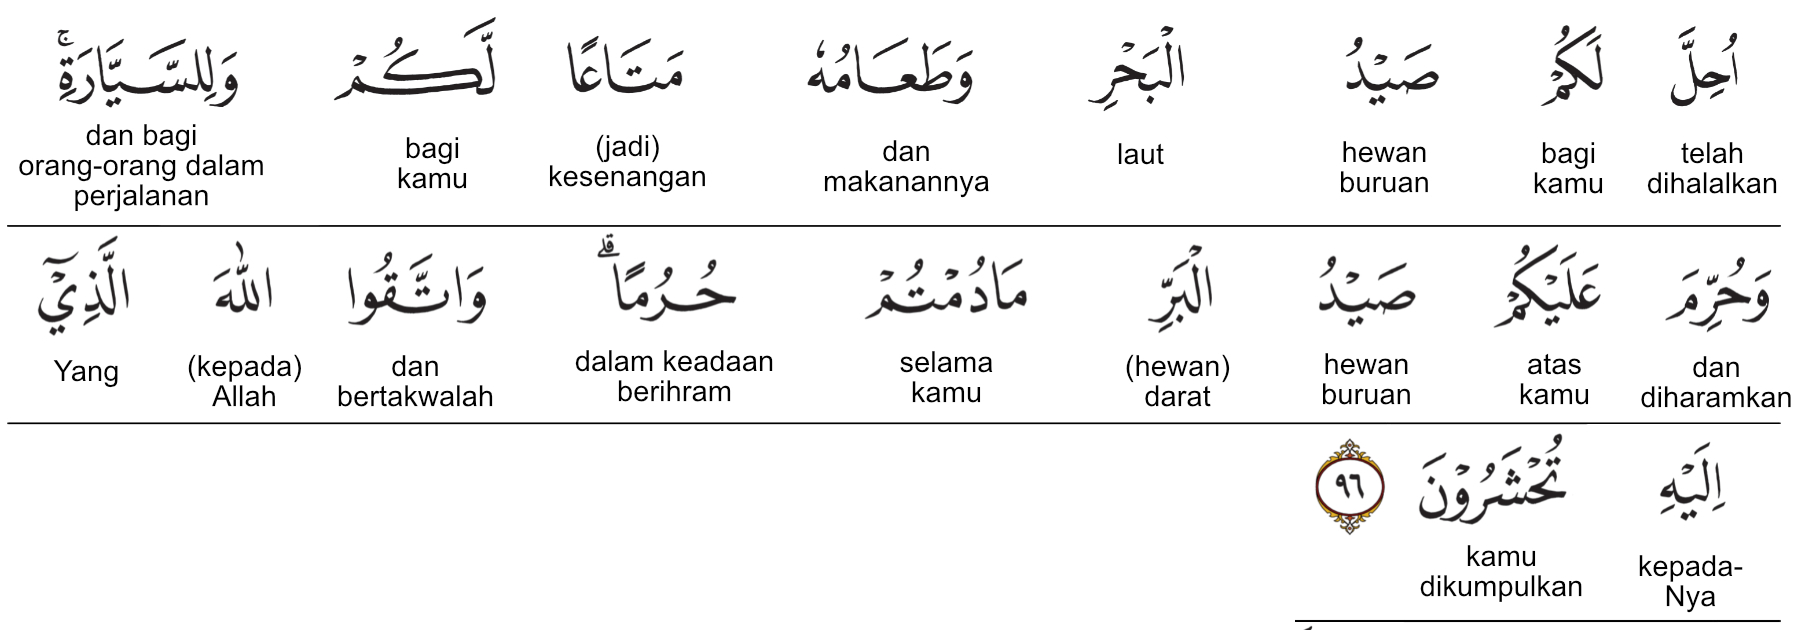 اُحِلَّ لَكُمْ صَيْدُ الْبَحْرِ وَطَعَامُهٗ مَتَاعًا لَّكُمْ وَلِلسَّيَّارَةِۚ
telah dihalalkan
bagi kamu
hewan buruan
laut
dan makanannya
(jadi) kesenangan
bagi kamu
dan bagi orang-orang dalam perjalanan
وَحُرِّمَ عَلَيْكُمْ صَيْدُ الْبَرِّ مَادُمْتُمْ حُرُمًاۗ وَاتَّقُوا اللّٰهَ الَّذِيْٓ
dan diharamkan
atas kamu
hewan buruan
(hewan) darat
selama kamu
dalam keadaan berihram
dan bertakwalah
(kepada) Allah
Yang
اِلَيْهِ تُحْشَرُوْنَ ٩٦
kepada-Nya
kamu dikumpulkan